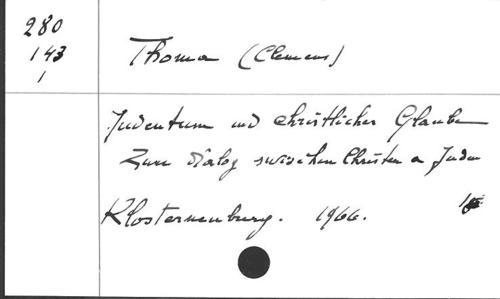 280
143
1
Thoma (Clemens)
Judentum und christlicher Glaube
Zum Dialog zwischen Christen u Juden
Klosterneuburg. 1966.